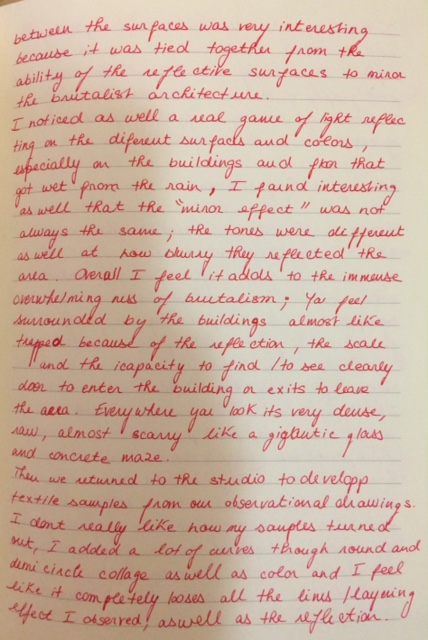 between the surfaces was very interesting
because it was tied together from the
ability of the reflective surfaces to miror
the brutalist architecture.
I noticed as well a real game of light reflec
ting on the diferent surfaces and colors,
especially on the buildings and floor that
got wet from the rain, I found interesting
as well that the "miror effect" was not
always the same; the tones were different
as well at how blurry they reflected the
area. Overall I feel it adds to the immense
overwhelming ness of brutalism; You feel
surrounded by the buildings almost like
trapped because of the reflection, the scale
and the icapacity to find / to see clearly
door to enter the building or exits to leave
the area. Everywhere you look its very dense,
raw, almost scarry like a gigantic glass
and concrete maze.
Then we returned to the studio to developp
textile samples from our observational drawings.
I dont really like how my samples turned
out, I added a lot of curves though round and
demi circle collage as well as color and I feel
like it completely looses all the lines / layering
effect I observed, as well as the reflection.